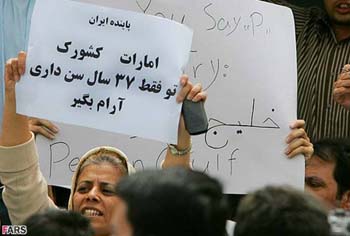 پاینده ایران
امارات کشورک
تو فقط ۳۷ سال سن داری
آرام بگیر
You Say "P"
ry:
خلیج
Gulf
FARS